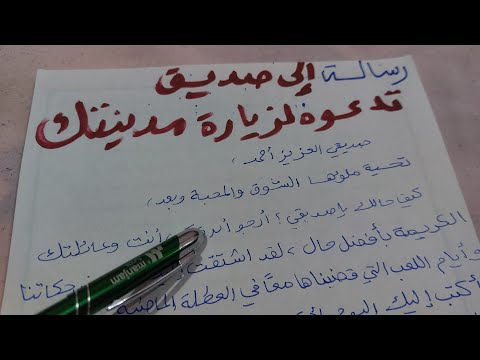 رسالة إلى صديق
تدعوه لزيارة مدينتك
صديقي العزيز أحمد،
تحية ملؤها الشوق والمحبة وبعد،
كيف حالك يا صديقي؟ أرجو أن أنت وعائلتك
الكريمة بأفضل حال، لقد اشتقت حكاتنا
و أيام اللعب التي قضيناها معاً في العطلة الماضية
أكتب إليك اليوم
marjam